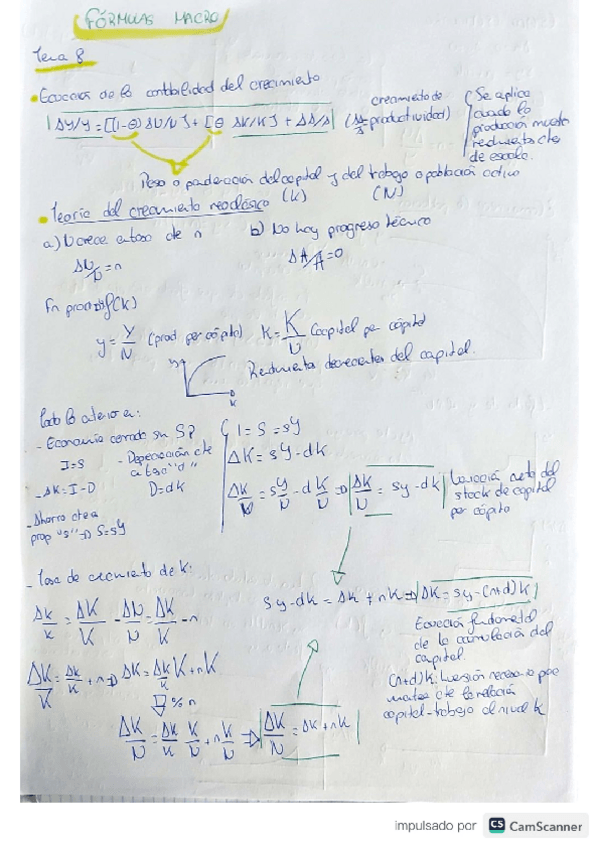 FÓRMULAS MACRO
Tema 8
• Ecuación de la contabilidad del crecimiento
ΔY/Y = [(1-θ) ΔN/N] + [θ ΔK/K] + ΔA/A
(crecimiento de productividad)
Se aplica
cuando la
producción muestra
rendimientos ctes
de escala.
Peso o ponderación del capital y del trabajo o población activa
(K) (N)
• Teoría del crecimiento neoclásico
a) N crece a tasa de n b) No hay progreso técnico
ΔN/N = n ΔA/A = 0
Fn prod f(K)
y = Y/N (prod. per cápita) k = K/N (capital per cápita)
y
k
Rendimientos decrecientes del capital.
Todo lo anterior en:
- Economía cerrada sin SP
I=S
- Depreciación cte
a tasa "d"
D=dk
- ΔK = I-D
- Ahorro cte a
prop "s" → S=sY
I = S = sY
ΔK = sY - dK
ΔK/N = sY/N - d K/N ⇒ ΔK/N = sy - dk
Variación neta del
stock de capital
per cápita
- Tasa de crecimiento de k:
Δk/k = ΔK/K - ΔN/N = ΔK/K - n
sy - dk = Δk + nk ⇒ Δk = sy - (n+d)k
Ecuación fundamental
de la acumulación del
capital.
(n+d)k: Inversión necesaria para
mantener cte la relación
capital-trabajo al nivel k
ΔK/K = Δk/k + n → ΔK = Δk/k K + nK
% n
ΔK/N = Δk/k K/N + n K/N ⇒ ΔK/N = Δk + nk
impulsado por CS CamScanner